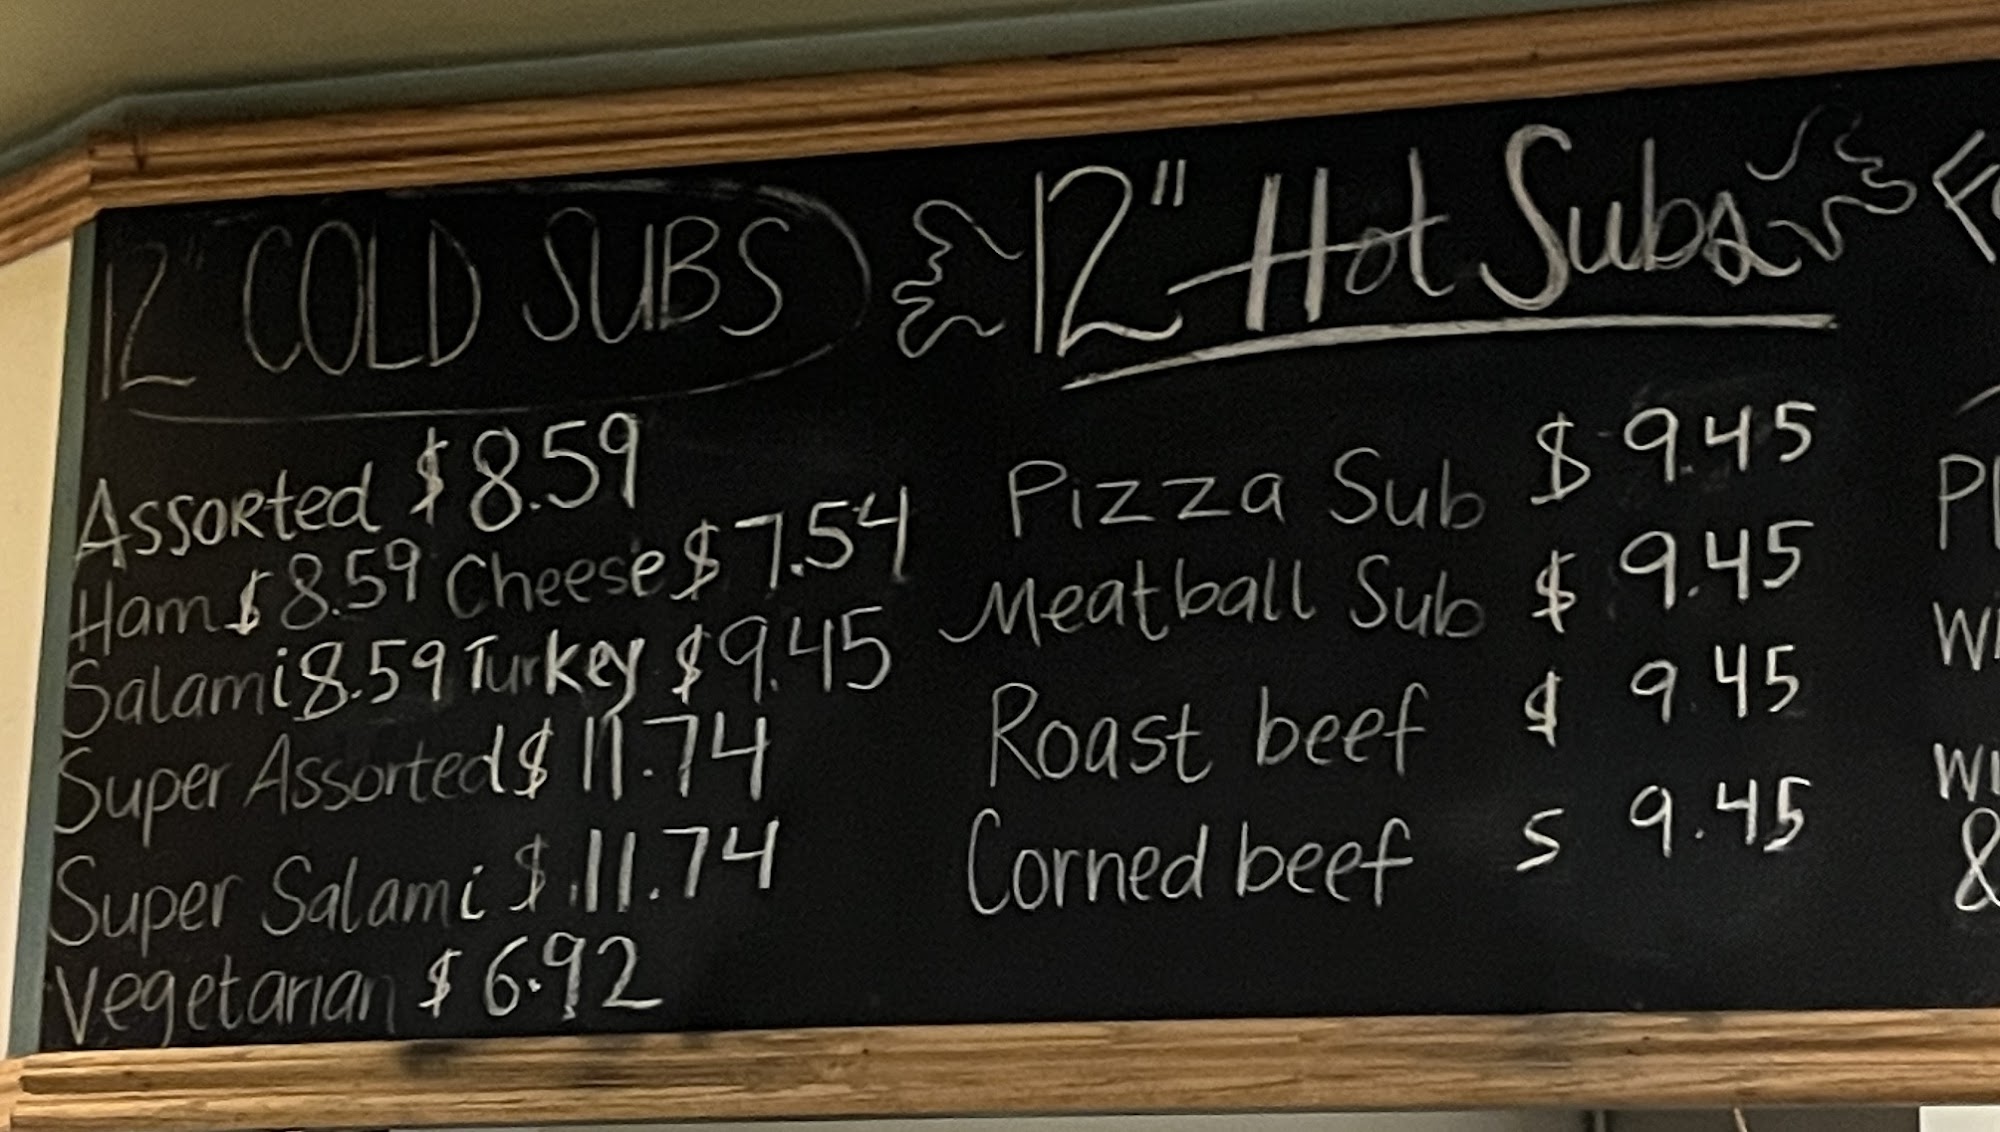 12" COLD SUBS
Assorted $8.59
Ham $8.59 Cheese $7.54
Salami 8.59 Turkey $9.45
Super Assorted $11.74
Super Salami $.11.74
Vegetarian $6.92
12" Hot Subs
Pizza Sub $9.45
Meatball Sub $9.45
Roast beef $9.45
Corned beef $9.45
&